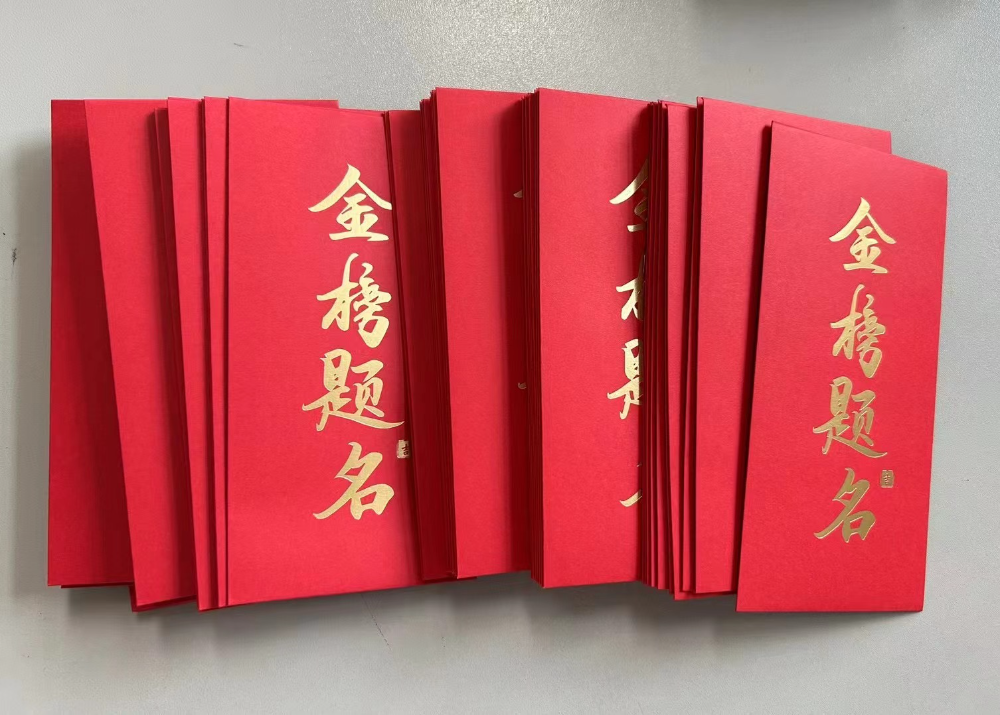 金榜题名
金榜题名